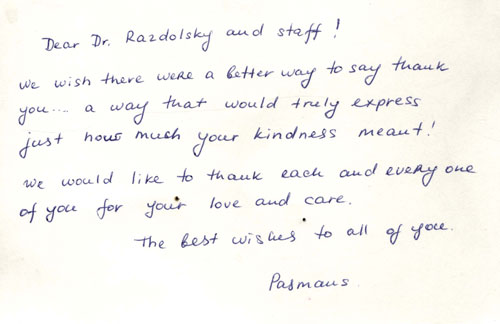 Dear Dr. Razdolsky and staff!
We wish there were a better way to say thank
you.... a way that would truly express
just how much your kindness meant!
We would like to thank each and every one
of you for your love and care.
The best wishes to all of you.
Pasmans